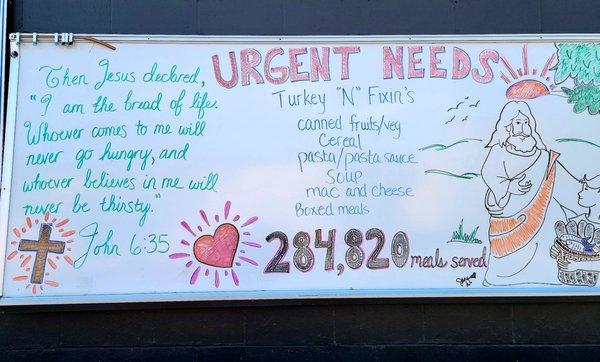 Then Jesus declared,
"I am the bread of life.
Whoever comes to me will
never go hungry, and
whoever believes in me will
never be thirsty."
John 6:35
URGENT NEEDS
Turkey "N" Fixin's
canned fruits/veg
Cereal
pasta/pasta sauce
Soup
mac and cheese
Boxed meals
284,820 meals served